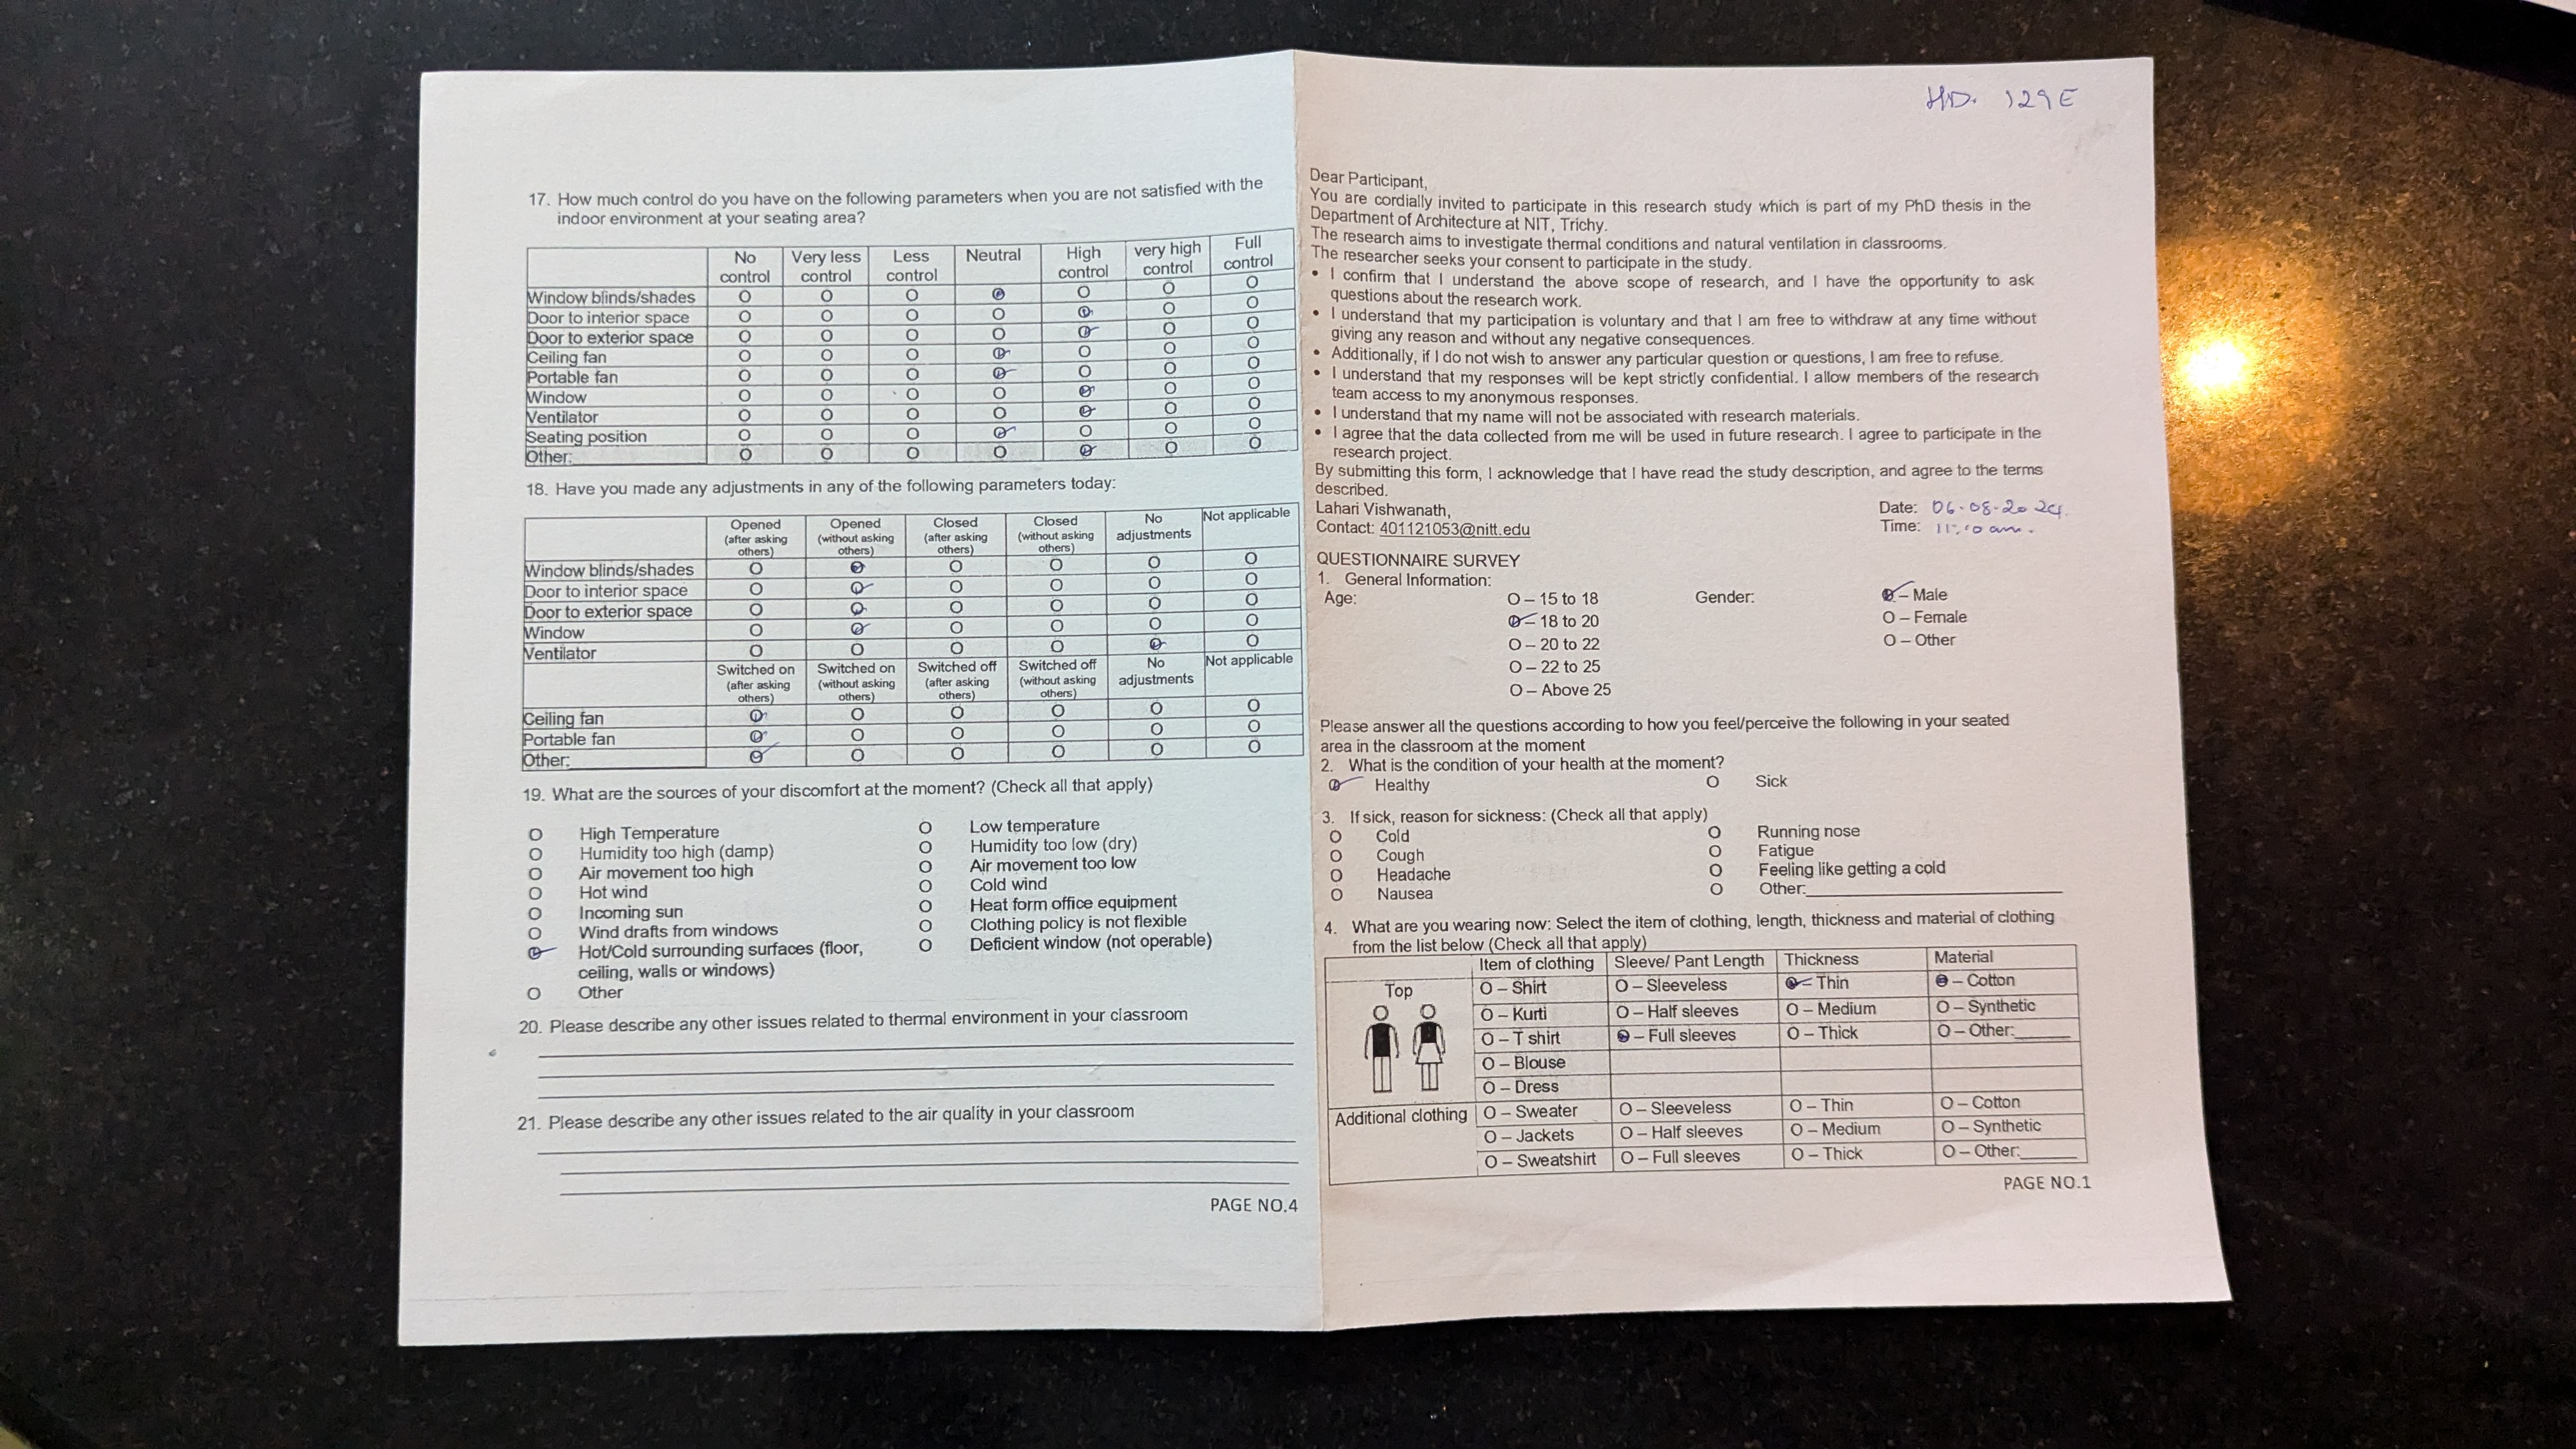 17. How much control do you have on the following parameters when you are not satisfied with the
indoor environment at your seating area?
No control Very less control Less control Neutral High control very high control Full control
Window blinds/shades O O O O O O O
Door to interior space O O O O O O O
Door to exterior space O O O O O O O
Ceiling fan O O O O O O O
Portable fan O O O O O O O
Window O O O O O O O
Ventilator O O O O O O O
Seating position O O O O O O O
Other: O O O O O O O
18. Have you made any adjustments in any of the following parameters today:
Opened (after asking others) Opened (without asking others) Closed (after asking others) Closed (without asking others) No adjustments Not applicable
Window blinds/shades O O O O O O
Door to interior space O O O O O O
Door to exterior space O O O O O O
Window O O O O O O
Ventilator O O O O O O
Switched on (after asking others) Switched on (without asking others) Switched off (after asking others) Switched off (without asking others) No adjustments Not applicable
Ceiling fan O O O O O O
Portable fan O O O O O O
Other: O O O O O O
19. What are the sources of your discomfort at the moment? (Check all that apply)
O High Temperature O Low temperature
O Humidity too high (damp) O Humidity too low (dry)
O Air movement too high O Air movement too low
O Hot wind O Cold wind
O Incoming sun O Heat form office equipment
O Wind drafts from windows O Clothing policy is not flexible
O Hot/Cold surrounding surfaces (floor, O Deficient window (not operable)
ceiling, walls or windows)
O Other
20. Please describe any other issues related to thermal environment in your classroom
21. Please describe any other issues related to the air quality in your classroom
PAGE NO.4
129E
Dear Participant,
You are cordially invited to participate in this research study which is part of my PhD thesis in the
Department of Architecture at NIT, Trichy.
The research aims to investigate thermal conditions and natural ventilation in classrooms.
The researcher seeks your consent to participate in the study.
• I confirm that I understand the above scope of research, and I have the opportunity to ask
questions about the research work.
• I understand that my participation is voluntary and that I am free to withdraw at any time without
giving any reason and without any negative consequences.
• Additionally, if I do not wish to answer any particular question or questions, I am free to refuse.
• I understand that my responses will be kept strictly confidential. I allow members of the research
team access to my anonymous responses.
• I understand that my name will not be associated with research materials.
• I agree that the data collected from me will be used in future research. I agree to participate in the
research project.
By submitting this form, I acknowledge that I have read the study description, and agree to the terms
described.
Lahari Vishwanath, Date: 06-08-2024
Contact: 401121053@nitt.edu Time:
QUESTIONNAIRE SURVEY
1. General Information:
Age: O – 15 to 18 Gender: O – Male
O – 18 to 20 O – Female
O – 20 to 22 O – Other
O – 22 to 25
O – Above 25
Please answer all the questions according to how you feel/perceive the following in your seated
area in the classroom at the moment
2. What is the condition of your health at the moment?
O Healthy O Sick
3. If sick, reason for sickness: (Check all that apply)
O Cold O Running nose
O Cough O Fatigue
O Headache O Feeling like getting a cold
O Nausea O Other:
4. What are you wearing now: Select the item of clothing, length, thickness and material of clothing
from the list below (Check all that apply)
Item of clothing Sleeve/ Pant Length Thickness Material
Top O – Shirt O – Sleeveless O – Thin O – Cotton
O – Kurti O – Half sleeves O – Medium O – Synthetic
O – T shirt O – Full sleeves O – Thick O – Other:
O – Blouse
O – Dress
Additional clothing O – Sweater O – Sleeveless O – Thin O – Cotton
O – Jackets O – Half sleeves O – Medium O – Synthetic
O – Sweatshirt O – Full sleeves O – Thick O – Other:
PAGE NO.1